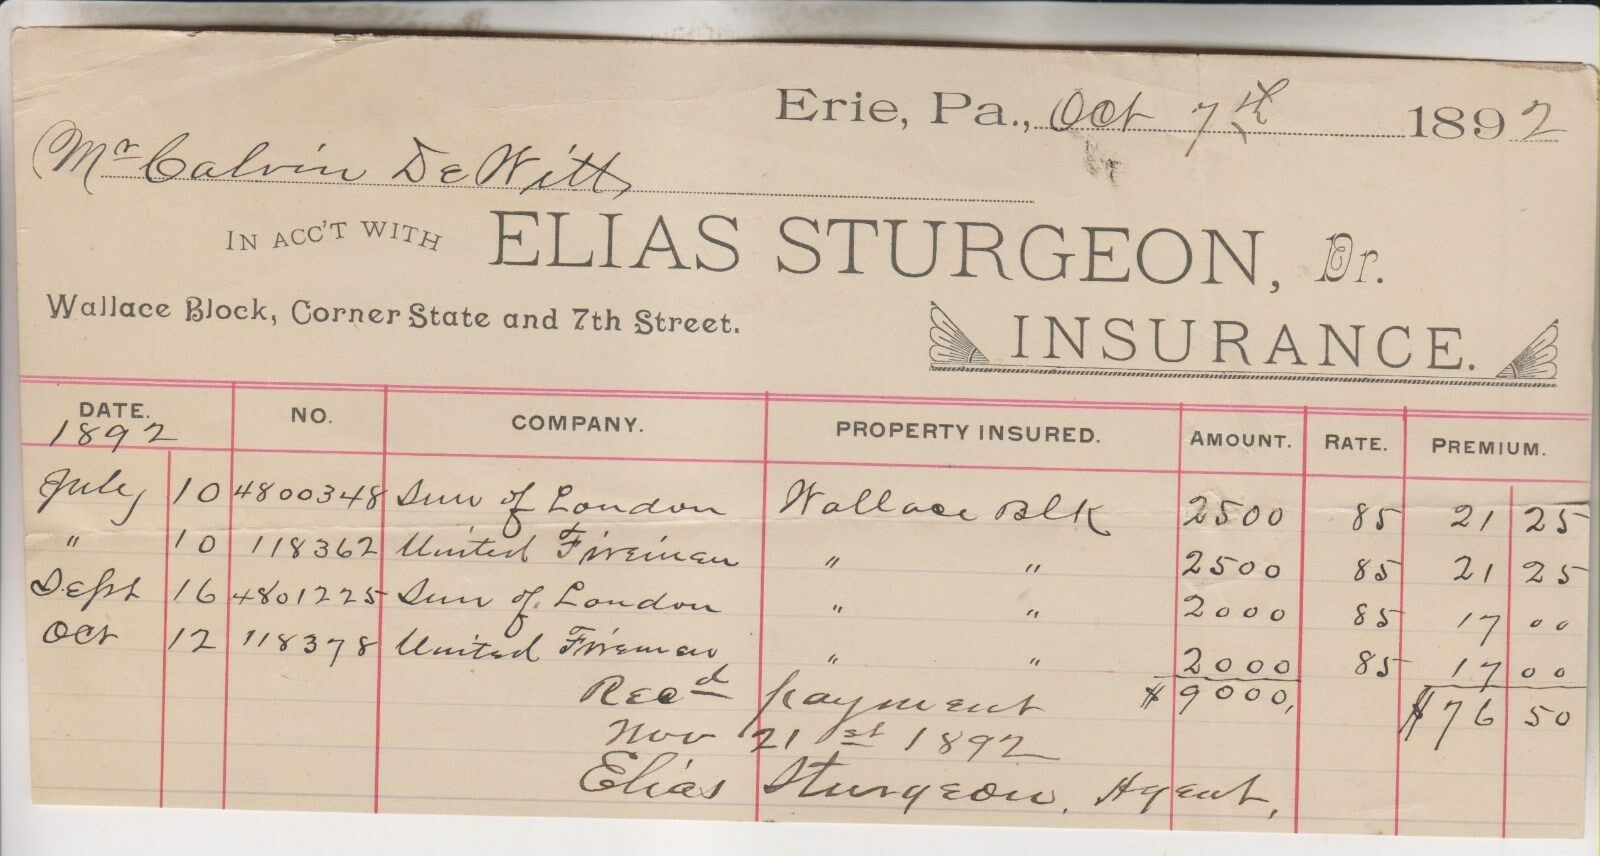 Erie, Pa., Oct 7th 1892
Mr Calvin DeWitt,
IN ACC'T WITH ELIAS STURGEON, Dr.
Wallace Block, Corner State and 7th Street. INSURANCE.
DATE. NO. COMPANY. PROPERTY INSURED. AMOUNT. RATE. PREMIUM.
1892
July 10 4800348 Sun of London Wallace Blk 2500 85 21 25
" 10 118362 United Fireman " " 2500 85 21 25
Sept 16 4801225 Sun of London " " 2000 85 17 00
Oct 12 118378 United Fireman " " 2000 85 17 00
Recd payment $9000, $76 50
Nov 21st 1892
Elias Sturgeon, Agent,